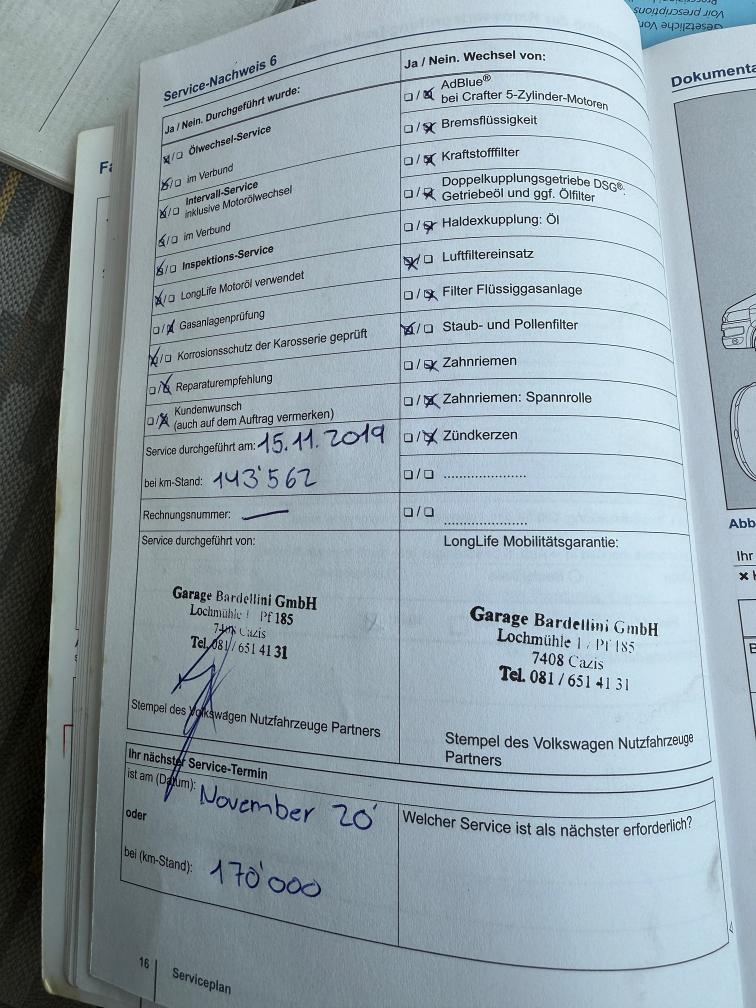 Gesetzliche Vor
Voir prescriptions
Service-Nachweis 6
Ja / Nein. Durchgeführt wurde:
☒/☐ Ölwechsel-Service
☒/☐ im Verbund
☒/☐ Intervall-Service
inklusive Motorölwechsel
☒/☐ im Verbund
☒/☐ Inspektions-Service
☒/☐ LongLife Motoröl verwendet
☐/☒ Gasanlagenprüfung
☒/☐ Korrosionsschutz der Karosserie geprüft
☐/☒ Reparaturempfehlung
☐/☒ Kundenwunsch
(auch auf dem Auftrag vermerken)
Service durchgeführt am: 15.11.2019
bei km-Stand: 143'562
Rechnungsnummer: —
Ja / Nein. Wechsel von:
☐/☒ AdBlue®
bei Crafter 5-Zylinder-Motoren
☐/☒ Bremsflüssigkeit
☐/☒ Kraftstofffilter
☐/☒ Doppelkupplungsgetriebe DSG®:
Getriebeöl und ggf. Ölfilter
☐/☒ Haldexkupplung: Öl
☒/☐ Luftfiltereinsatz
☐/☒ Filter Flüssiggasanlage
☒/☐ Staub- und Pollenfilter
☐/☒ Zahnriemen
☐/☒ Zahnriemen: Spannrolle
☐/☒ Zündkerzen
☐/☐ ......................
☐/☐ ......................
Service durchgeführt von:
Garage Bardellini GmbH
Lochmühle 1 / Pf 185
7408 Cazis
Tel. 081 / 651 41 31
Stempel des Volkswagen Nutzfahrzeuge Partners
LongLife Mobilitätsgarantie:
Garage Bardellini GmbH
Lochmühle 1 / Pf 185
7408 Cazis
Tel. 081 / 651 41 31
Stempel des Volkswagen Nutzfahrzeuge
Partners
Ihr nächster Service-Termin
ist am (Datum): November 20'
oder
bei (km-Stand): 170'000
Welcher Service ist als nächster erforderlich?
16 Serviceplan
Dokumenta
Abb
Ihr